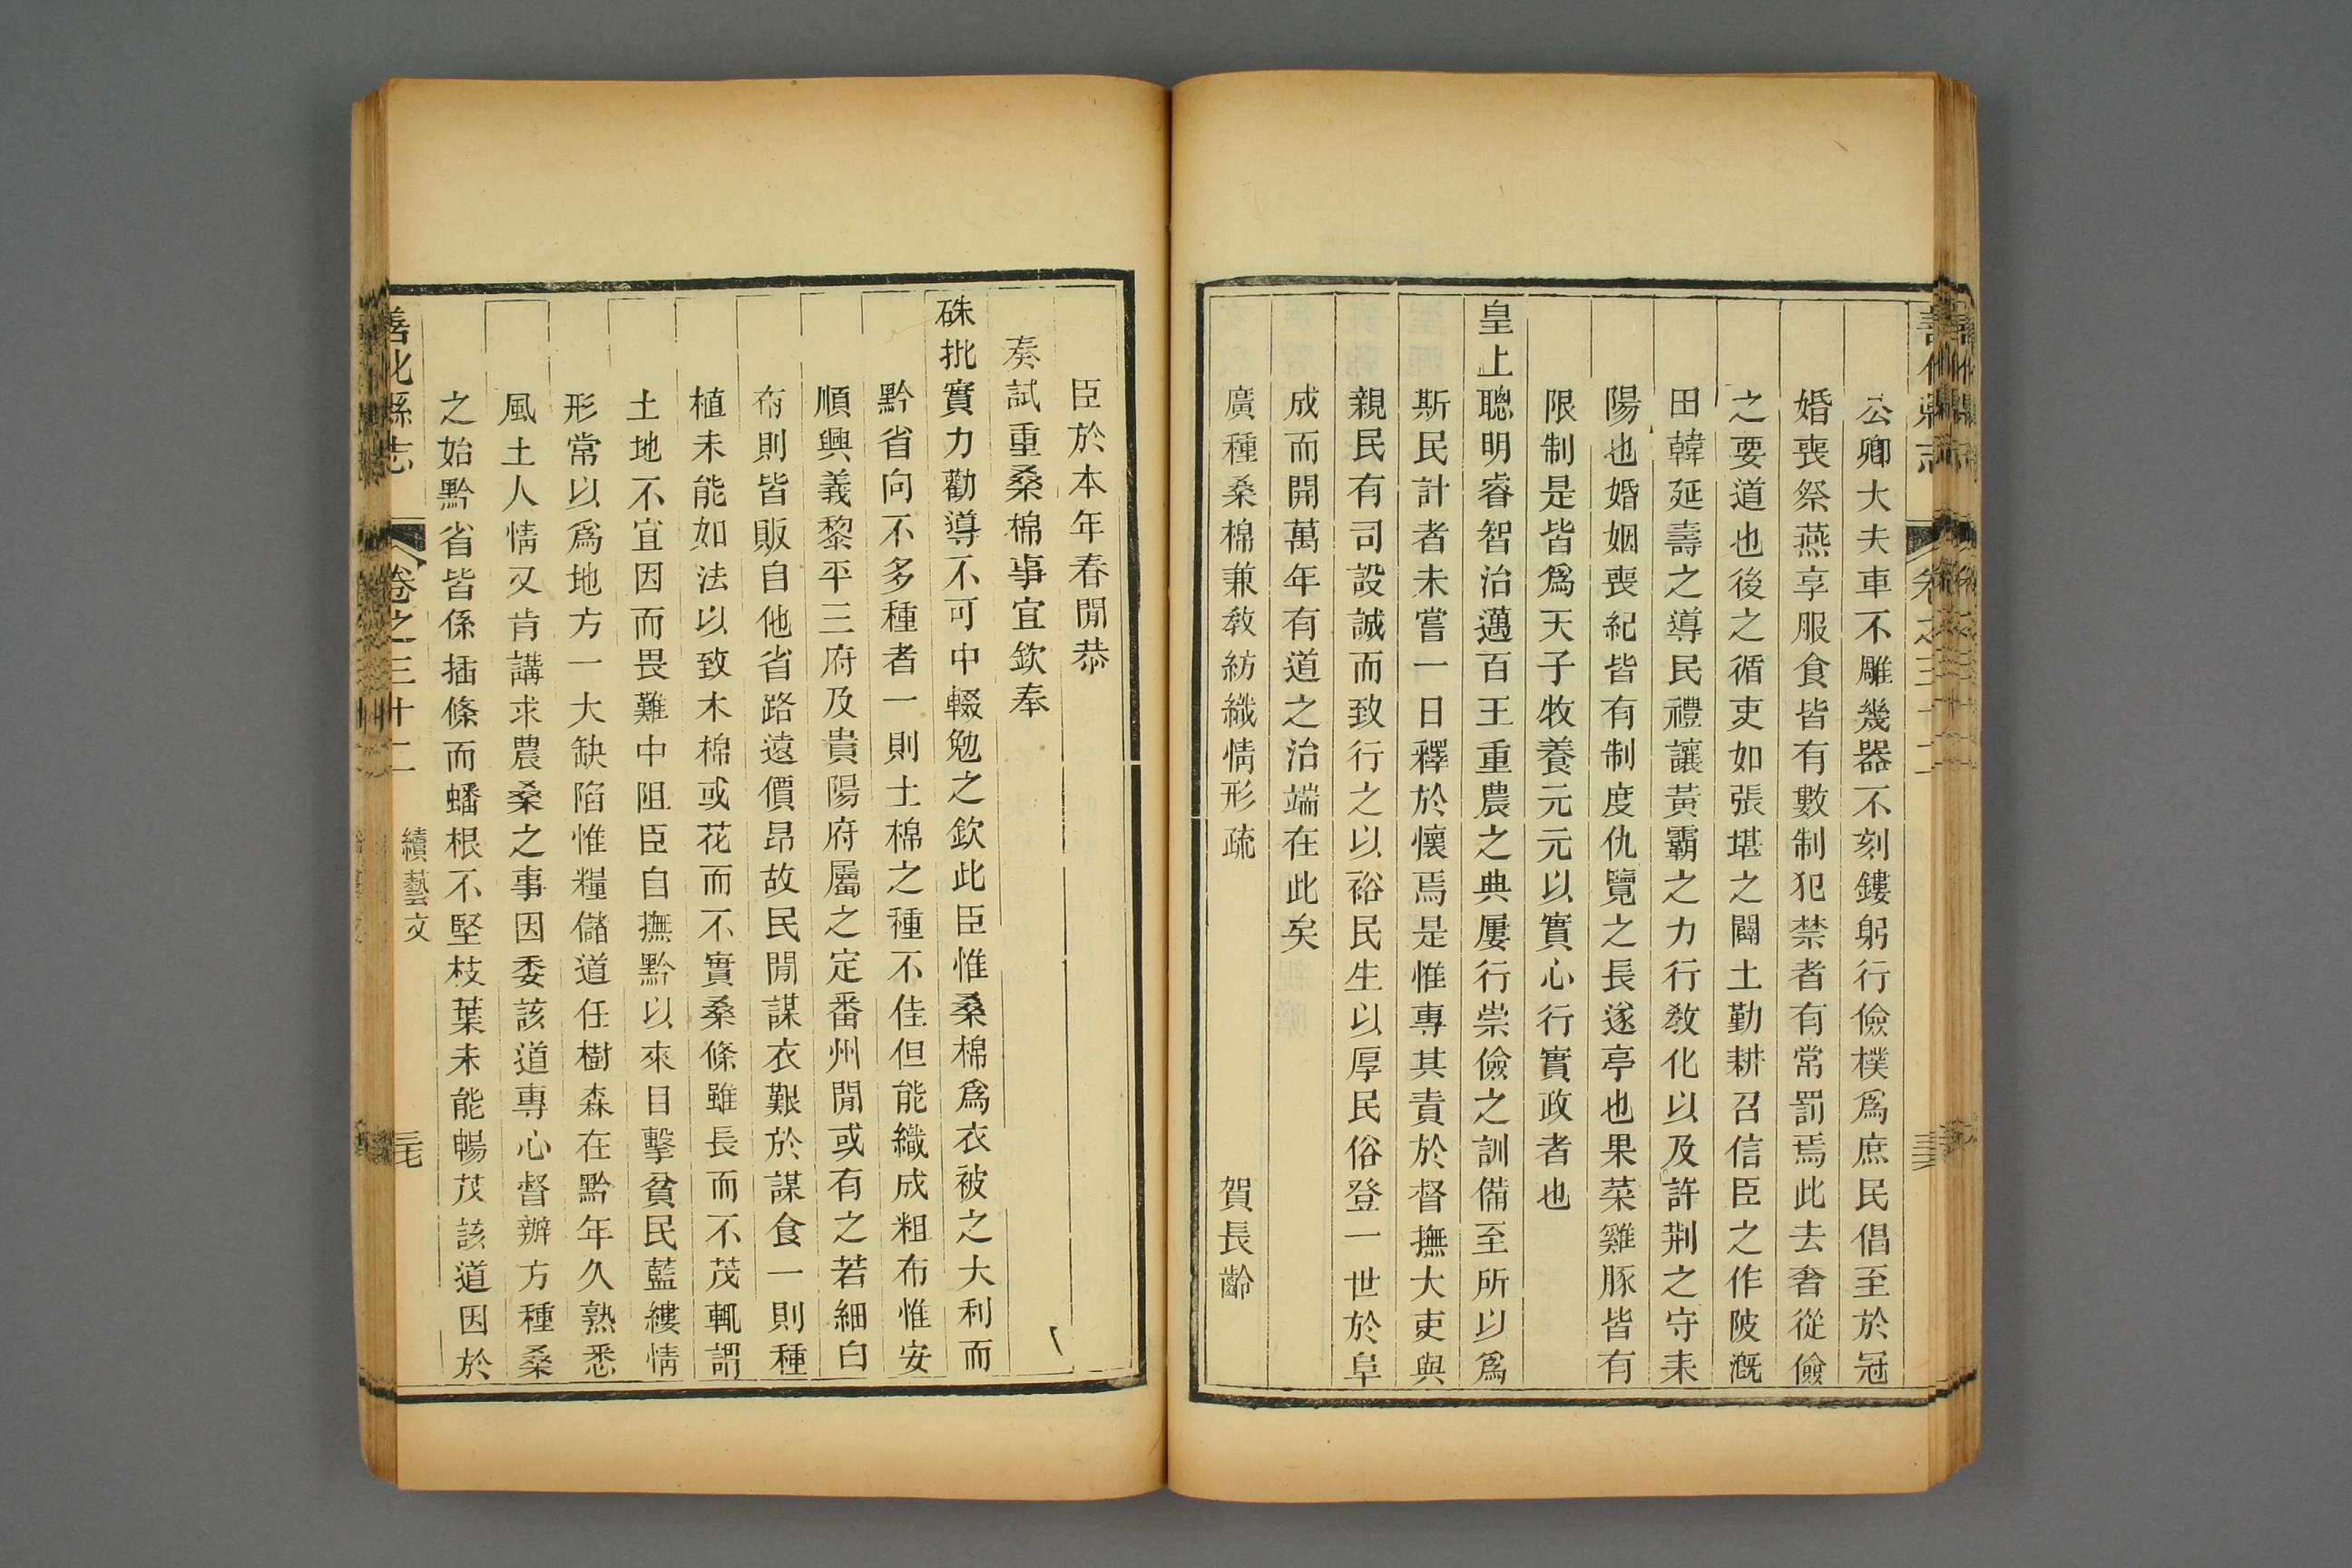 善化縣志
卷之三十二
公卿大夫車不雕幾器不刻鏤躬行儉樸爲庶民倡至於冠
婚喪祭燕享服食皆有數制犯禁者有常罰焉此去奢從儉
之要道也後之循吏如張堪之闢土勤耕召信臣之作陂漑
田韓延壽之導民禮讓黃霸之力行教化以及許荆之守耒
陽也婚姻喪紀皆有制度仇覽之長遂亭也果菜雞豚皆有
限制是皆爲天子牧養元元以實心行實政者也
皇上聰明睿智治邁百王重農之典屢行崇儉之訓備至所以爲
斯民計者未嘗一日釋於懷焉是惟專其責於督撫大吏與
親民有司設誠而致行之以裕民生以厚民俗登一世於阜
成而開萬年有道之治端在此矣
廣種桑棉兼教紡織情形疏 賀長齡
臣於本年春閒恭
奏試重桑棉事宜欽奉
硃批實力勸導不可中輟勉之欽此臣惟桑棉爲衣被之大利而
黔省向不多種者一則土棉之種不佳但能織成粗布惟安
順興義黎平三府及貴陽府屬之定番州閒或有之若細白
布則皆販自他省路遠價昂故民閒謀衣艱於謀食一則種
植未能如法以致木棉或花而不實桑條雖長而不茂輒謂
土地不宜因而畏難中阻臣自撫黔以來目擊貧民藍縷情
形常以爲地方一大缺陷惟糧儲道任樹森在黔年久熟悉
風土人情又肯講求農桑之事因委該道專心督辦方種桑
之始黔省皆係插條而蟠根不堅枝葉未能暢茂該道因於
善化縣志
卷之三十二
續藝文
三七